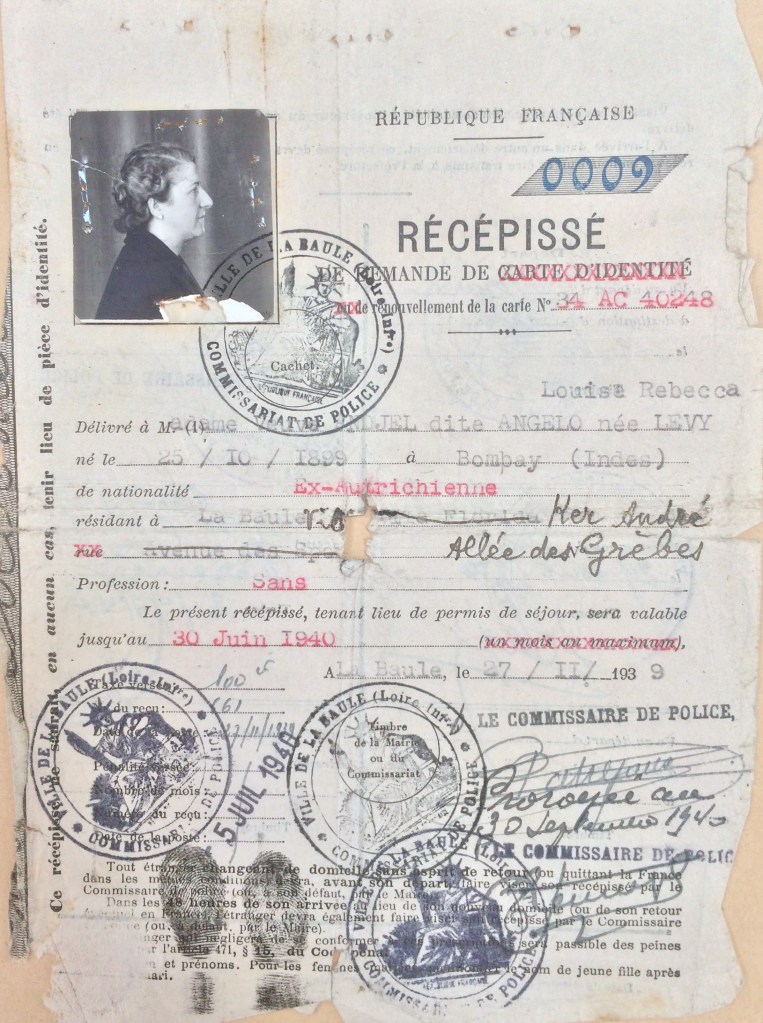 RÉPUBLIQUE FRANÇAISE
0009
RÉCÉPISSÉ
DE DEMANDE DE CARTE D'IDENTITÉ
de renouvellement de la carte No 34 AC 40248
VILLE DE LA BAULE (Loire-Infre)
COMMISSARIAT DE POLICE
Cachet.
RÉPUBLIQUE FRANÇAISE
Louise Rebecca
Délivré à M. (1) adame DJEL dite ANGELO née LEVY
né le 25 / 10 / 1899 à Bombay (Indes)
de nationalité Ex-Autrichienne
résidant à La Baule Florida Ker André
rue avenue des Allée des Grèbes
Profession: Sans
Le présent récépissé, tenant lieu de permis de séjour, sera valable
jusqu'au 30 Juin 1940 (un mois au maximum),
A La Baule, le 27 / II / 1939
LE COMMISSAIRE DE POLICE,
Taxe versée 100
du reçu: 661
Date de la
Pénalité versée:
Nombre de mois:
Numéro du reçu:
Date de la Poste:
VILLE DE LA BAULE (Loire-Infre)
COMMISS DE POLICE
5 JUIL 1940
VILLE DE LA BAULE (Loire Infre)
COMMISSARIAT DE POLICE
Timbre
de la Mairie
ou du
Commissariat
Prorogée au
30 Septembre 1940
LE COMMISSAIRE DE POLIC
Tout étranger changeant de domicile sans esprit de retour (ou quittant la France
dans les mêmes conditions) devra, avant son départ, faire viser son récépissé par le
Commissaire de police (ou, à son défaut, par le Maire).
Dans les 48 heures de son arrivée au lieu de son nouveau domicile (ou de son retour
en France), l'étranger devra également faire viser son récépissé par le Commissaire
(ou, à défaut, par le Maire).
qui négligera de se conformer à ces prescriptions sera passible des peines
l'article 471, § 15, du Code pénal.
et prénoms. Pour les femmes le nom de jeune fille après
mari.
LA BAULE
COMMISSA DE POLICE
Ce récépissé ne saurait, en aucun cas, tenir lieu de pièce d'identité.